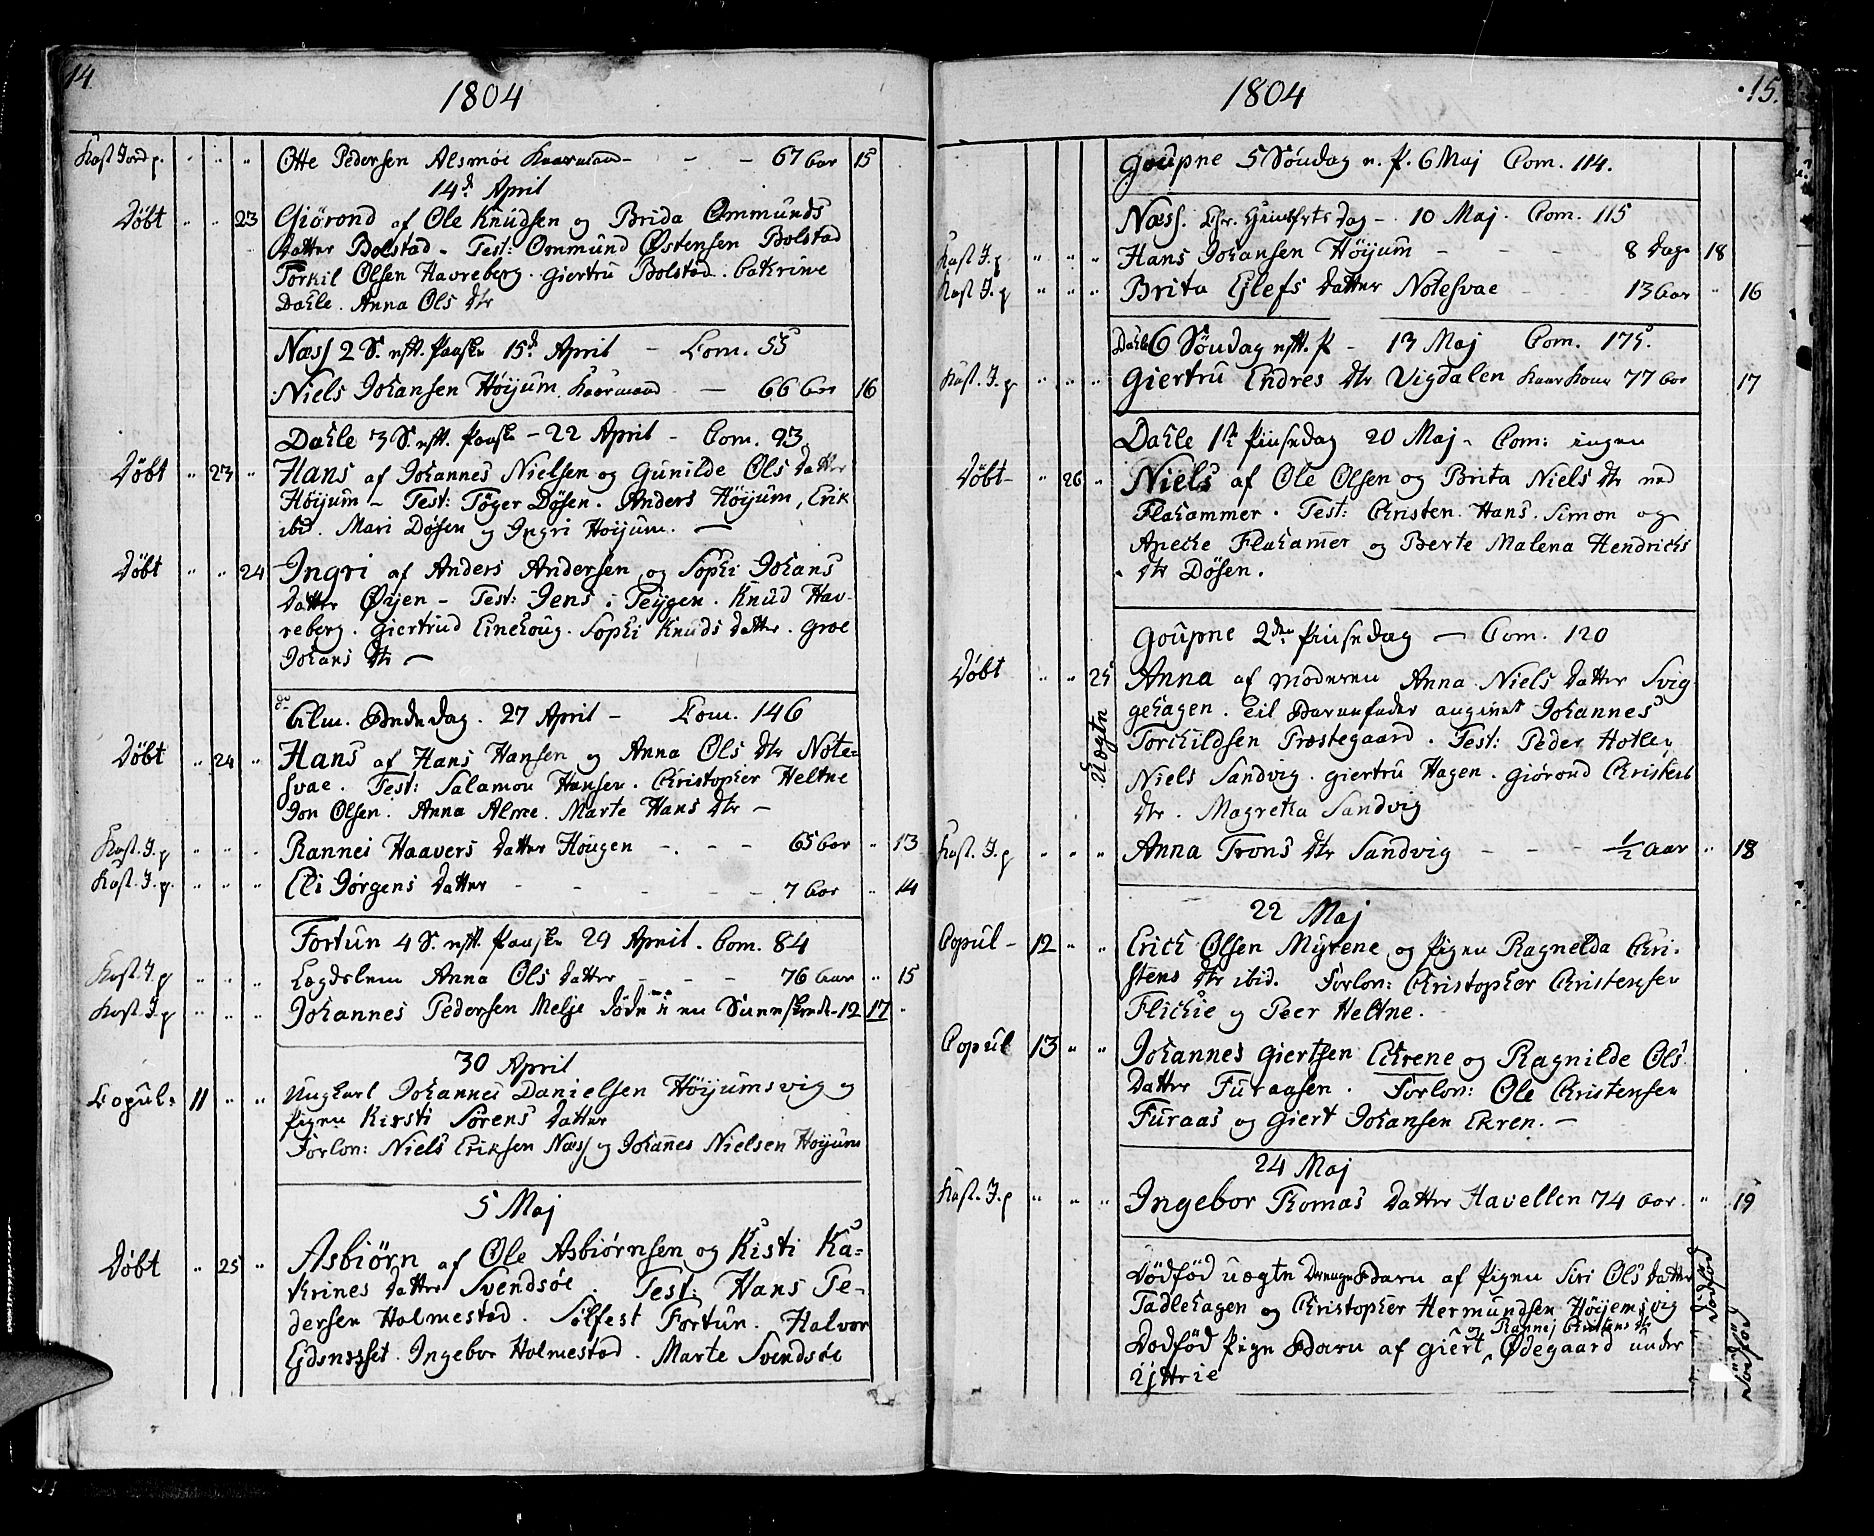 14
1804
Kast Jord p. " " " Otte Pedersen Alsmøe Kaarmand - - - 67 Aar 15
14d April
Døbt " " 23 Giörond af Ole Knudsen og Brida Ommunds
Datter Bolstad - Test: Ommund Østensen Bolstad
Torkil Olsen Havreberg. Giertru Bolstad. Catrine
Dahle. Anna Ols Dtr
Næss 2 S. eft. Paaske 15d April - Com. 55
Niels Johansen Höijum Kaarmand - 66 Aar 16
Dahle 3 S. eft. Paaske - 22 April - Com. 93
Døbt " 23 " Hans af Johannes Nielsen og Gunilde Ols Datter
Höijum - Test: Tøger Døsen. Anders Höijum, Erik
ibd. Mari Døsen og Ingri Hoijum. -
Døbt " " 24 Ingri af Anders Andersen og Sophi Johans
Datter Ørjen - Test: Jens i Teigen. Knud Hav-
reberg. Giertrud Linehoug. Sophi Knuds Datter. Groe
Johans Dtr -
Alm. Bededag. 27 April - Com. 146
Døbt " 24 " Hans af Hans Hansen og Anna Ols Dtr Note-
svae. Test: Salamon Hansen. Christopher Heltne
Jon Olsen. Anna Alme. Marte Hans Dtr -
Kast. J. p " " " Rannei Haavers Datter Hougen - . - - 65 Aar " 13
Kast. J. p. " " " Eli Jørgens Datter - - - - 7 Aar " 14
Fortun 4 S. eft. Paaske 29 April. Com. 84
Kast. J p " " " Lægdslem Anna Ols Datter - - - 76 Aar " 15
Kast. J. p " " " Johannes Pedersen Melje døde i en Sneeskrede - 12 17 "
30 April
Copul: 11 " " Ungkarl Johannes Danielsen Höijumsvig og
Pigen Kirsti Sørens Datter
Forlov: Niels Eriksen Næss og Johannes Nielsen Hoijum
5 Maj
Døbt " 25 " Asbiörn af Ole Asbiörnsen og Kisti Ka-
trines Datter Svendsøe. Test: Hans Pe-
dersen Holmestad. Sølfest Fortun. Halvor
Eidsnæsset. Ingebor Holmestad. Marte Svendsøe
15.
1804
Goupne 5 Söndag e. P. 6 Maj Com. 114.
Næss. Chr. Himlfrts Dag - 10 Maj. Com. 115
Kast J. p " " " Hans Johansen Höijum - - - 8 Dage 18
Kast J. p " " " Brita Elefs Datter Notesvae - - 13 Aar " 16
Dahle 6 Söndag eft. P - 13 Maj Com. 175.
Kast. J. p " " " Giertru Endres Dtr Vigdalen Kaarkone 77 Aar 17
Dahle 1ste Pinsedag 20 Maj - Com: ingen
Døbt - " 26 " Niels af Ole Olsen og Brita Niels Dtr ned
Flahammer. Test: Christen. Hans. Simon og
Aneche Flahamer og Berte Malena Hendrichs
Dtr Døsen.
Goupne 2den Pinsedag - Com. 120
Døbt " " 25 Anna af Moderen Anna Niels Datter Svig-
Uægte
gehagen. Til Barnefader angivet Johannes
Torchildsen Præstegaard. Test: Peder Hotler
Niels Sandvig. Giertru Hagen. Giörond Christens
Dtr. Magretha Sandvig
Kast. J. p " " " Anna Trons Dtr Sandvig - - - 1/2 Aar " 18
22 Maj
Copul - 12 " " Erich Olsen Myrene og Pigen Ragnelda Chri-
stens Dtr ibid. Forlov: Christopher Christensen
Flichie og Peer Heltne.
Copul 13 " " Johannes Giertsen Echrene og Ragnilde Ols
Datter Furaasen. Forlov: Ole Christensen
Furaas og Giert Johansen Ekren. -
24 Maj
Kast. J. p " " " Ingebor Thomas Datter Havellen 74 Aar. " 19
Dødfød uægte Drenge Barn af Pigen Siri Ols Datter
Dødfød
Tadlehagen og Christopher Hermundsen Höijemsvig
og Rannej Christens Dtr
Dødfød Pige Barn af Giert Ødegaard under
Dødfød
Yttrie